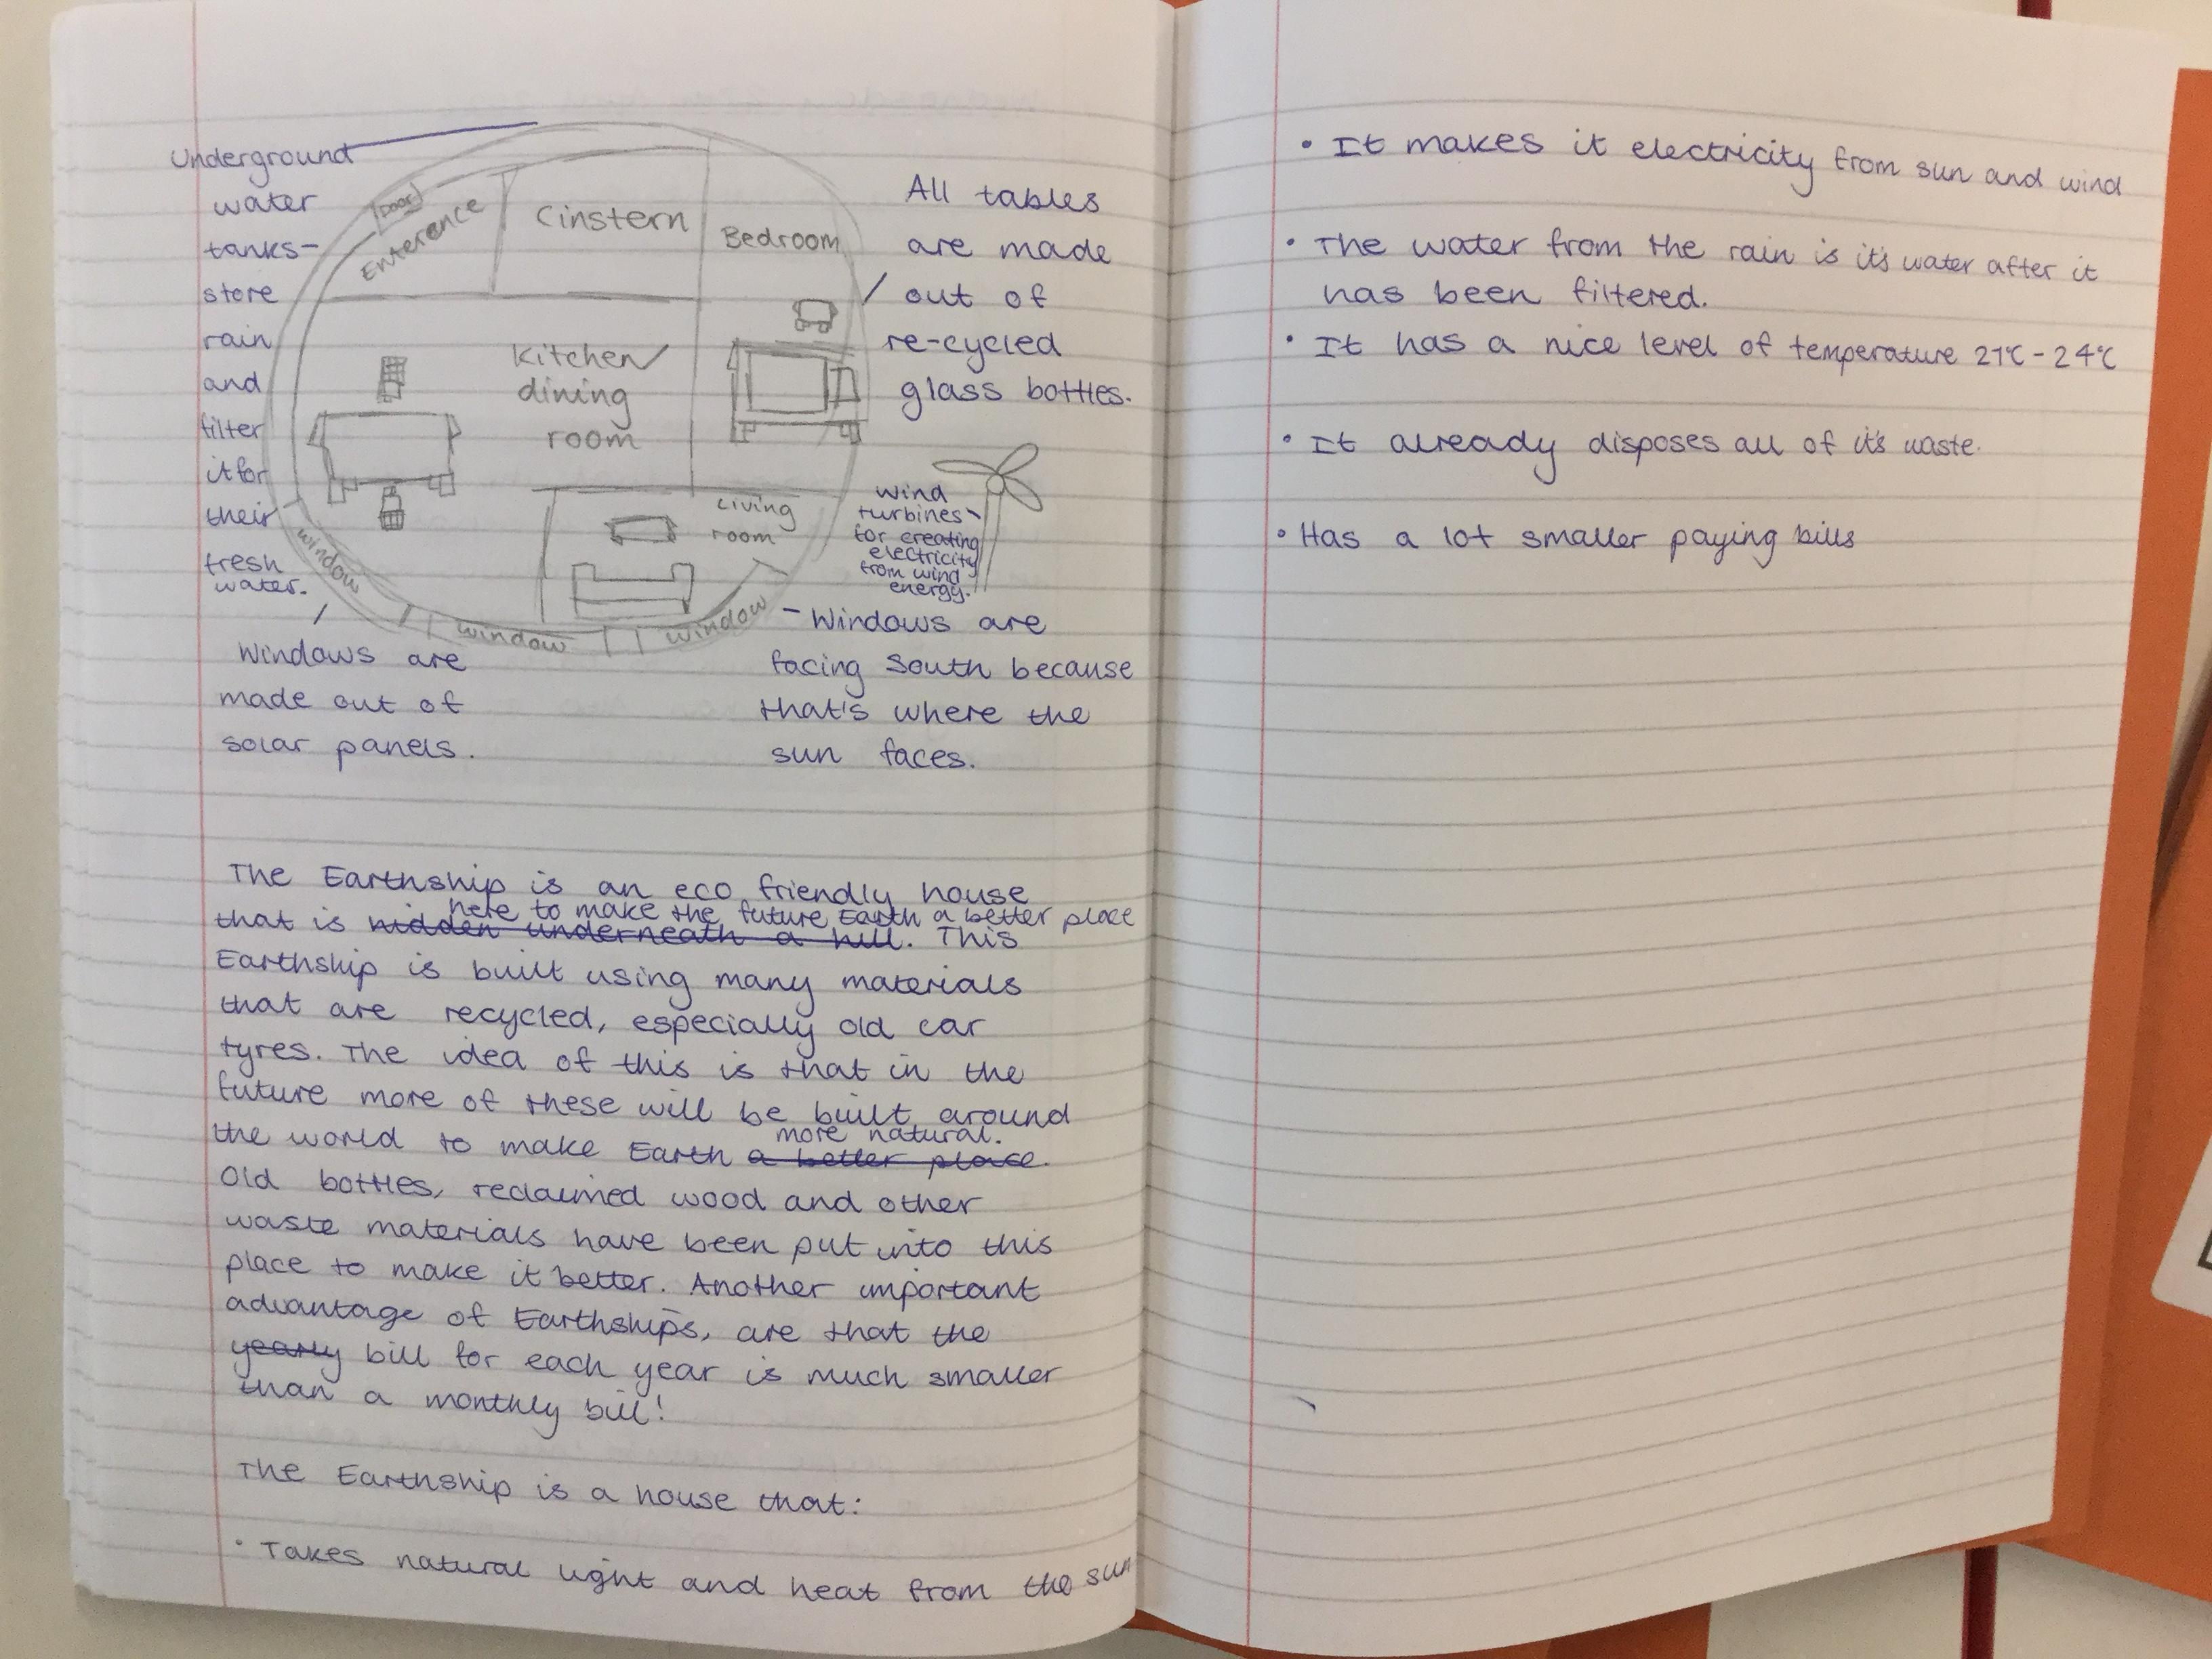 Underground
water
tanks-
store
rain
and
filter
it for
their
fresh
water.
Door
Enterence
Cinstern
Bedroom
Kitchen/
dining
room
Living
room
window
window
window
All tables
are made
out of
re-cycled
glass bottles.
Wind
turbines
for creating
electricity
from wind
energy.
Windows are
made out of
solar panels.
- Windows are
facing South because
that's where the
sun faces.
The Earthship is an eco friendly house
here to make the future Earth a better place
that is hidden underneath a hill. This
Earthship is built using many materials
that are recycled, especially old car
tyres. The idea of this is that in the
future more of these will be built around
more natural.
the world to make Earth a better place.
Old bottles, reclaimed wood and other
waste materials have been put into this
place to make it better. Another important
advantage of Earthships, are that the
yearly bill for each year is much smaller
than a monthly bill!
The Earthship is a house that:
• Takes natural light and heat from the sun
• It makes it electricity from sun and wind
• The water from the rain is it's water after it
has been filtered.
• It has a nice level of temperature 21°C - 24°C
• It already disposes all of it's waste.
• Has a lot smaller paying bills